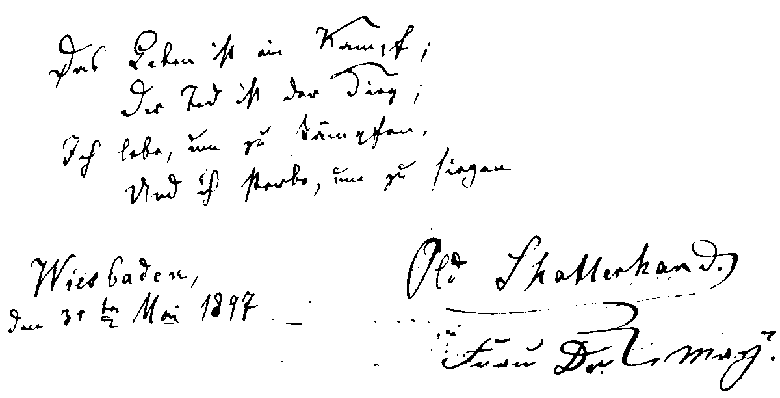 Das Leben ist ein Kampf;
Der Tod ist der Sieg;
Ich lebe, um zu kämpfen,
Und ich sterbe, um zu siegen
Wiesbaden,
den 31ten Mai 1897
Old Shatterhand.
Frau Dr. May.